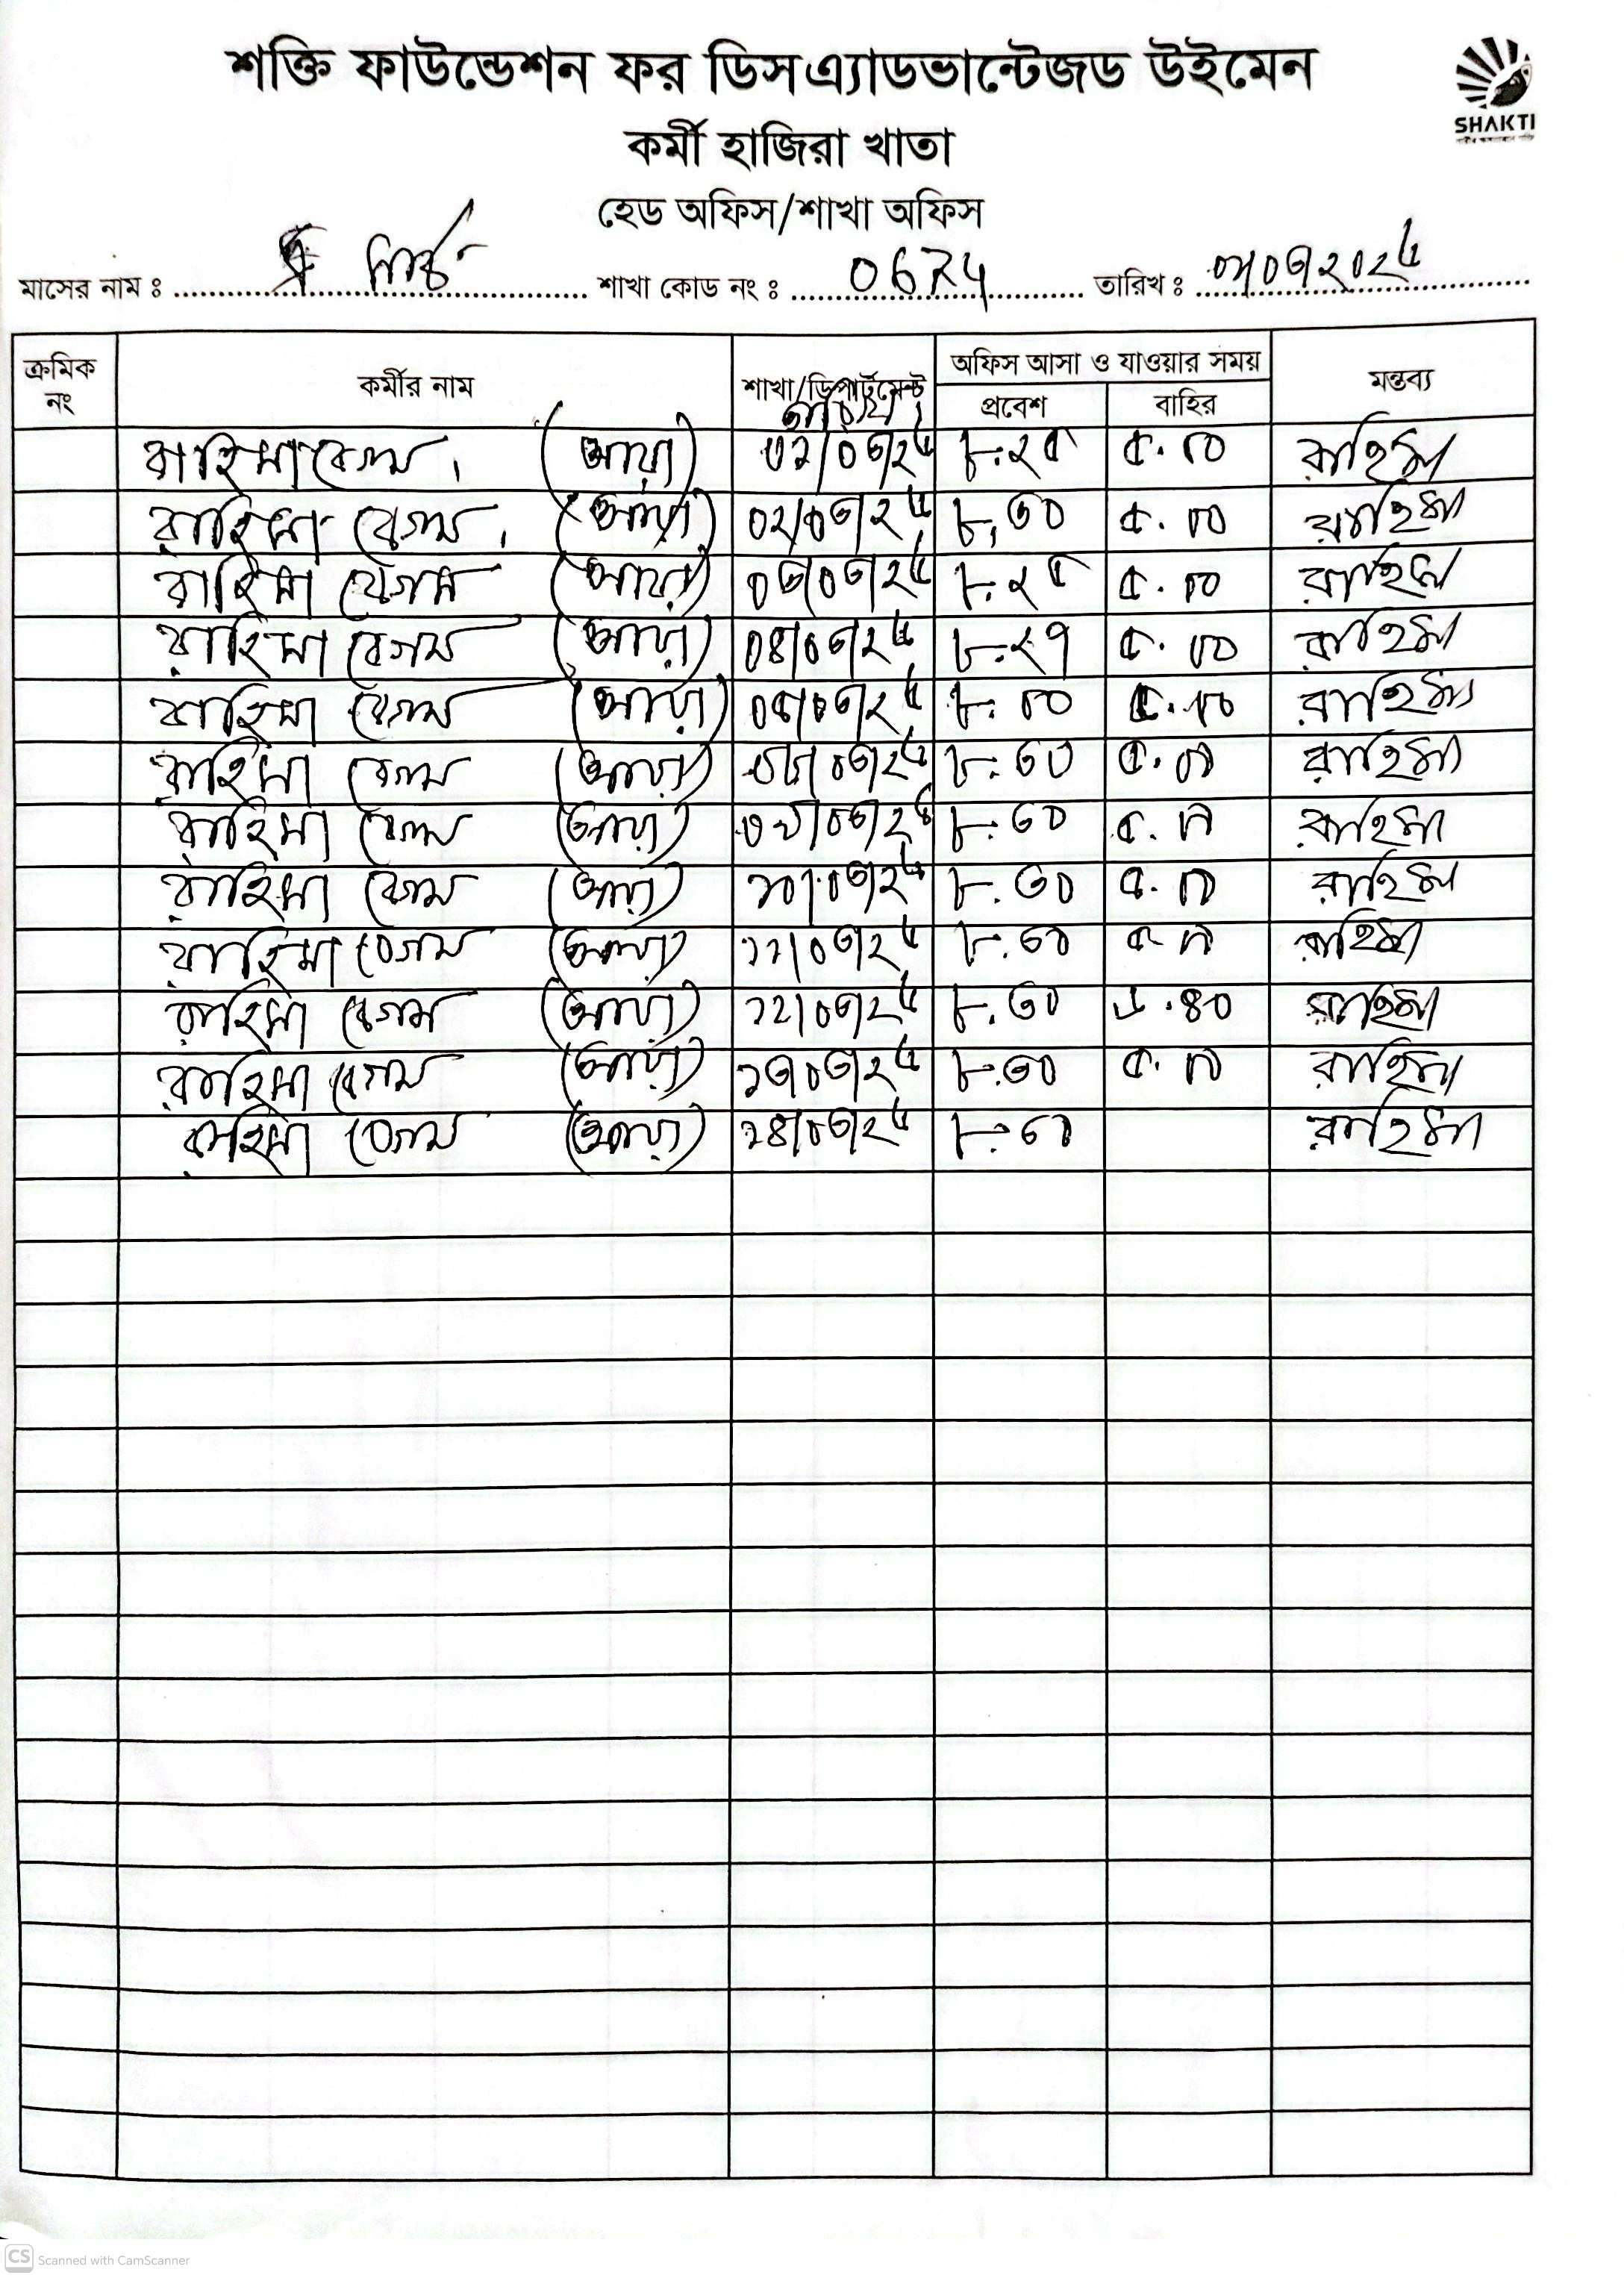 শক্তি ফাউন্ডেশন ফর ডিসএ্যাডভান্টেজড উইমেন
SHAKTI
কর্মী হাজিরা খাতা
হেড অফিস/শাখা অফিস
মাসের নাম ঃ মার্চ শাখা কোড নং ঃ তারিখ ঃ
ক্রমিক নং কর্মীর নাম শাখা/ডিপার্টমেন্ট অফিস আসা ও যাওয়ার সময় মন্তব্য
প্রবেশ বাহির
রাহিমা বেগম (আয়া) ৮.২৫ ৫.০০ রাহিমা
রাহিমা বেগম (আয়া) ০২/০৩/২৫ ৮.৩০ ৫.০০ রাহিমা
রাহিমা বেগম (আয়া) ০৩/০৩/২৫ ৮.২৫ ৫.০০ রাহিমা
রাহিমা বেগম (আয়া) ০৪/০৩/২৫ ৮.২৭ ৫.০০ রাহিমা
রাহিমা বেগম (আয়া) ০৫/০৩/২৫ ৮.০০ ৫.০০ রাহিমা
রাহিমা বেগম (আয়া) ৮.৩০ ৫.০০ রাহিমা
রাহিমা বেগম (আয়া) ৮.৩০ রাহিমা
রাহিমা বেগম (আয়া) ১০/০৩/২৫ ৮.৩০ ৫.০০ রাহিমা
রাহিমা বেগম (আয়া) ১১/০৩/২৫ ৮.৩০ রাহিমা
রাহিমা বেগম (আয়া) ১২/০৩/২৫ ৮.৩০ ৬.৪০ রাহিমা
রাহিমা বেগম (আয়া) ১৩/০৩/২৫ ৮.৩০ ৫.০০ রাহিমা
রাহিমা বেগম (আয়া) ১৪/০৩/২৫ ৮.৩০ রাহিমা
CS Scanned with CamScanner